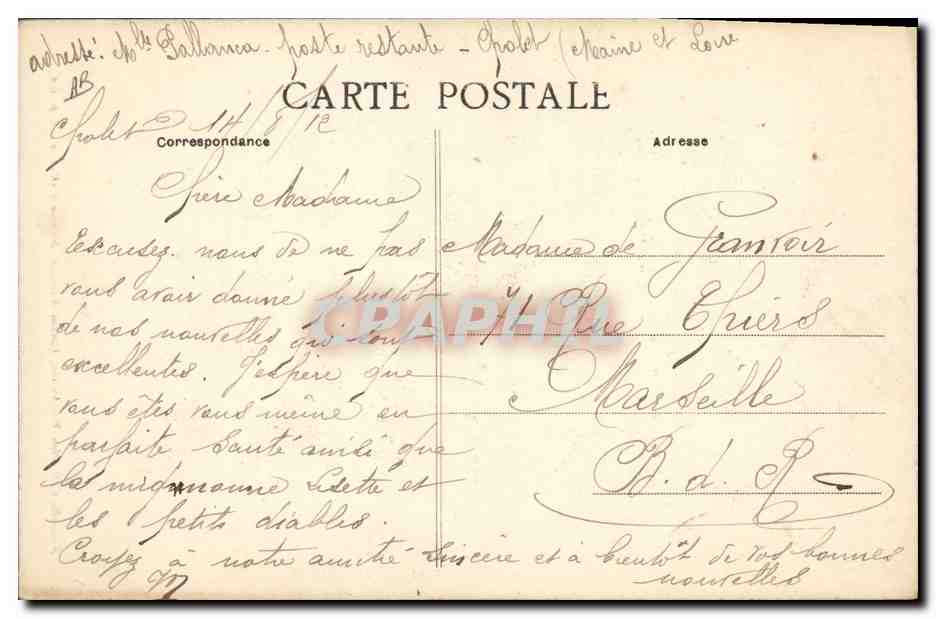 adresse: Mlle Pallanca - poste restante - Cholet (Maine et Loire
AB
CARTE POSTALE
Cholet 14/8/12
Correspondance
Adresse
Chère Madame
Excusez nous de ne pas
vous avoir donné plustôt
de nos nouvelles qui sont
excellentes. J'espère que
vous êtes vous même en
parfaite santé ainsi que
la mignonne Lisette et
les petits diables.
Croyez à notre amitié sincère et à bientôt de vos bonnes
nouvelles
Madame de Granvoir
71 Rue Thiers
Marseille
B. d. R
CPAPHIL